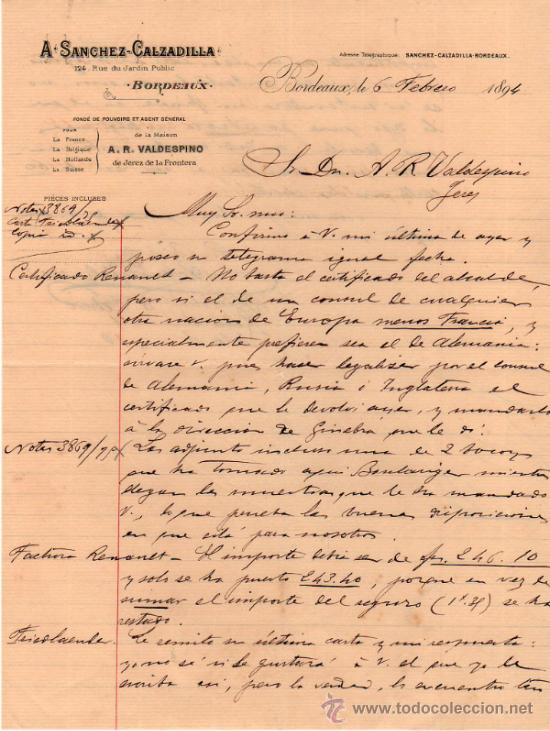 A. SANCHEZ-CALZADILLA
124, Rue du Jardin Public
BORDEAUX
Adresse Télégraphique: SANCHEZ-CALZADILLA-BORDEAUX.
Bordeaux, le 6 Febrero 1894
FONDÉ DE POUVOIRS ET AGENT GÉNÉRAL
POUR
La France
La Belgique
La Hollande
La Suisse
de la Maison
A. R. VALDESPINO
de Jerez de la Frontera
Sr. Dn. A. R. Valdespino
Jerez
PIÈCES INCLUSES
Notas 3869/
Carta Friedlaender
Copia
Muy Sr. mio:
Confirmo à V. mi última de ayer y
poseo su telegrama igual fecha.
Certificado Renanet - No basta el certificado del alcalde,
pero si el de un consul de cualquier
otra nacion de Europa menos Francia, y
especialmente prefieren sea el de Alemania:
sirvase V. pues hacer legalizar por el consul
de Alemania, Rusia ó Inglaterra el
certificado que le devolví ayer, y mandarlo
à la direccion de Ginebra que le dí.
Notas 3869/ Las adjunto incluso una de 2 Bocoyes
que ha tomado aqui Boulanger mientras
llegan las muestras que le ha mandado
V., lo que prueba las buenas disposiciones
en que está para nosotros.
Factura Renanet - El importe debia ser de 246.10
y solo se ha puesto 243.40, porque en vez de
sumar el importe del seguro se ha
restado.
Friedlaender. Le remito su última carta y mi respuesta:
yo no sé si le gustará à V. el que yo le
escriba asi, pero la verdad, lo encuentro tan
www.todocoleccion.net